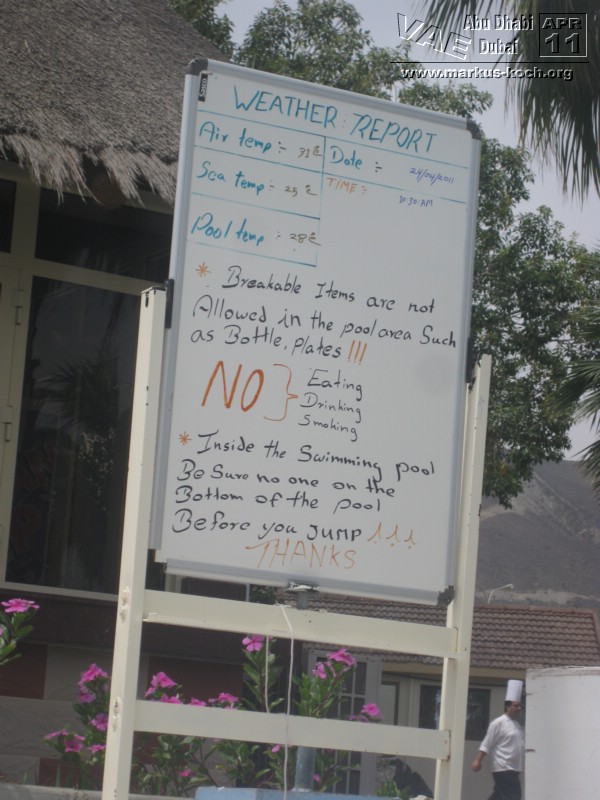 VAE
Abu Dhabi
Dubai
APR
11
www.markus-koch.org
WEATHER : REPORT
Air temp :- 33°C
Date :- 24/04/2011
Sea temp :- 25°C
TIME :- 10:30 AM
Pool temp :- 28°C
* Breakable Items are not
Allowed in the pool area Such
as Bottle, plates !!!
NO } Eating
Drinking
Smoking
* Inside the Swimming pool
Be Sure no one on the
Bottom of the pool
Before you JUMP !!!
THANKS